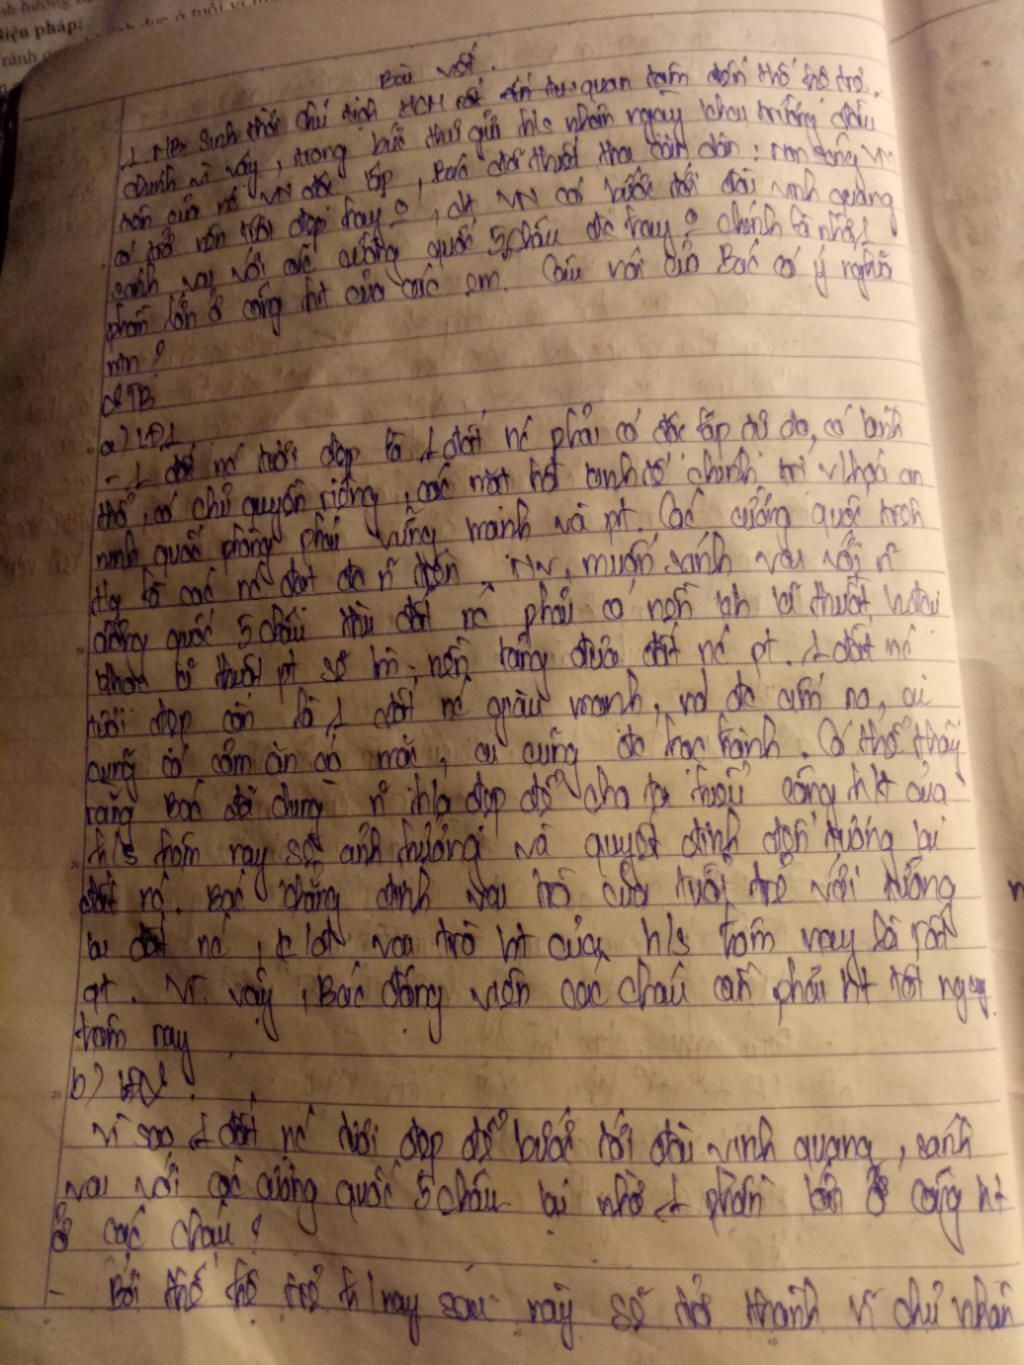 iệu pháp:
Bài viết.
1. MB: Sinh thời chủ tịch HCM rất quan tâm đến thế hệ trẻ.
chính vì vậy, trong bức thư gửi h/s nhân ngày khai trường đầu
tiên của nc VN độc lập, Bác đã thiết tha căn dặn: non sông VN
có trở nên tươi đẹp hay ko?, dt VN có bước tới đài vinh quang
sánh vai với các cường quốc 5 châu đc hay ko? chính là nhờ 1
phần lớn ở công ht của các em. Câu nói của Bác có ý nghĩa
ntn?
2. TB
a) LĐ1
- 1 đất nc tươi đẹp là 1 đất nc phải có độc lập tự do, có lãnh
thổ, có chủ quyền riêng, các mặt kinh tế chính trị văn hoá an
ninh quốc phòng phải vững mạnh và pt. Các cường quốc trên
là các nc đạt đc muốn sánh vai với
cường quốc 5 châu thì đất nc phải có nền kh kĩ thuật
kĩ thuật pt sẽ nền tảng đưa đất nc pt. 1 đất nc
tươi đẹp còn là 1 đất nc giàu mạnh, nd đc ấm no, ai
cũng có cơm ăn áo mặc, ai cũng đc học hành. Có thể thấy
rằng Bác đã dùng đẹp để cho ta thấy công ht của
h/s hôm nay sẽ ảnh hưởng và quyết định đến tương lai
đất nc. Bác khẳng định vai trò của tuổi trẻ với tương
lai đất nc, vai trò ht của h/s hôm nay là rất
qt. Vì vậy, Bác động viên các cháu cần phải ht tốt ngay
hôm nay
b) LĐ2:
Vì sao 1 đất nc tươi đẹp để bước tới đài vinh quang, sánh
vai với các cường quốc 5 châu lại nhờ 1 phần lớn ở công ht
ở các cháu?
- Bởi thế hệ trẻ h/nay sau này sẽ trở thành chủ nhân